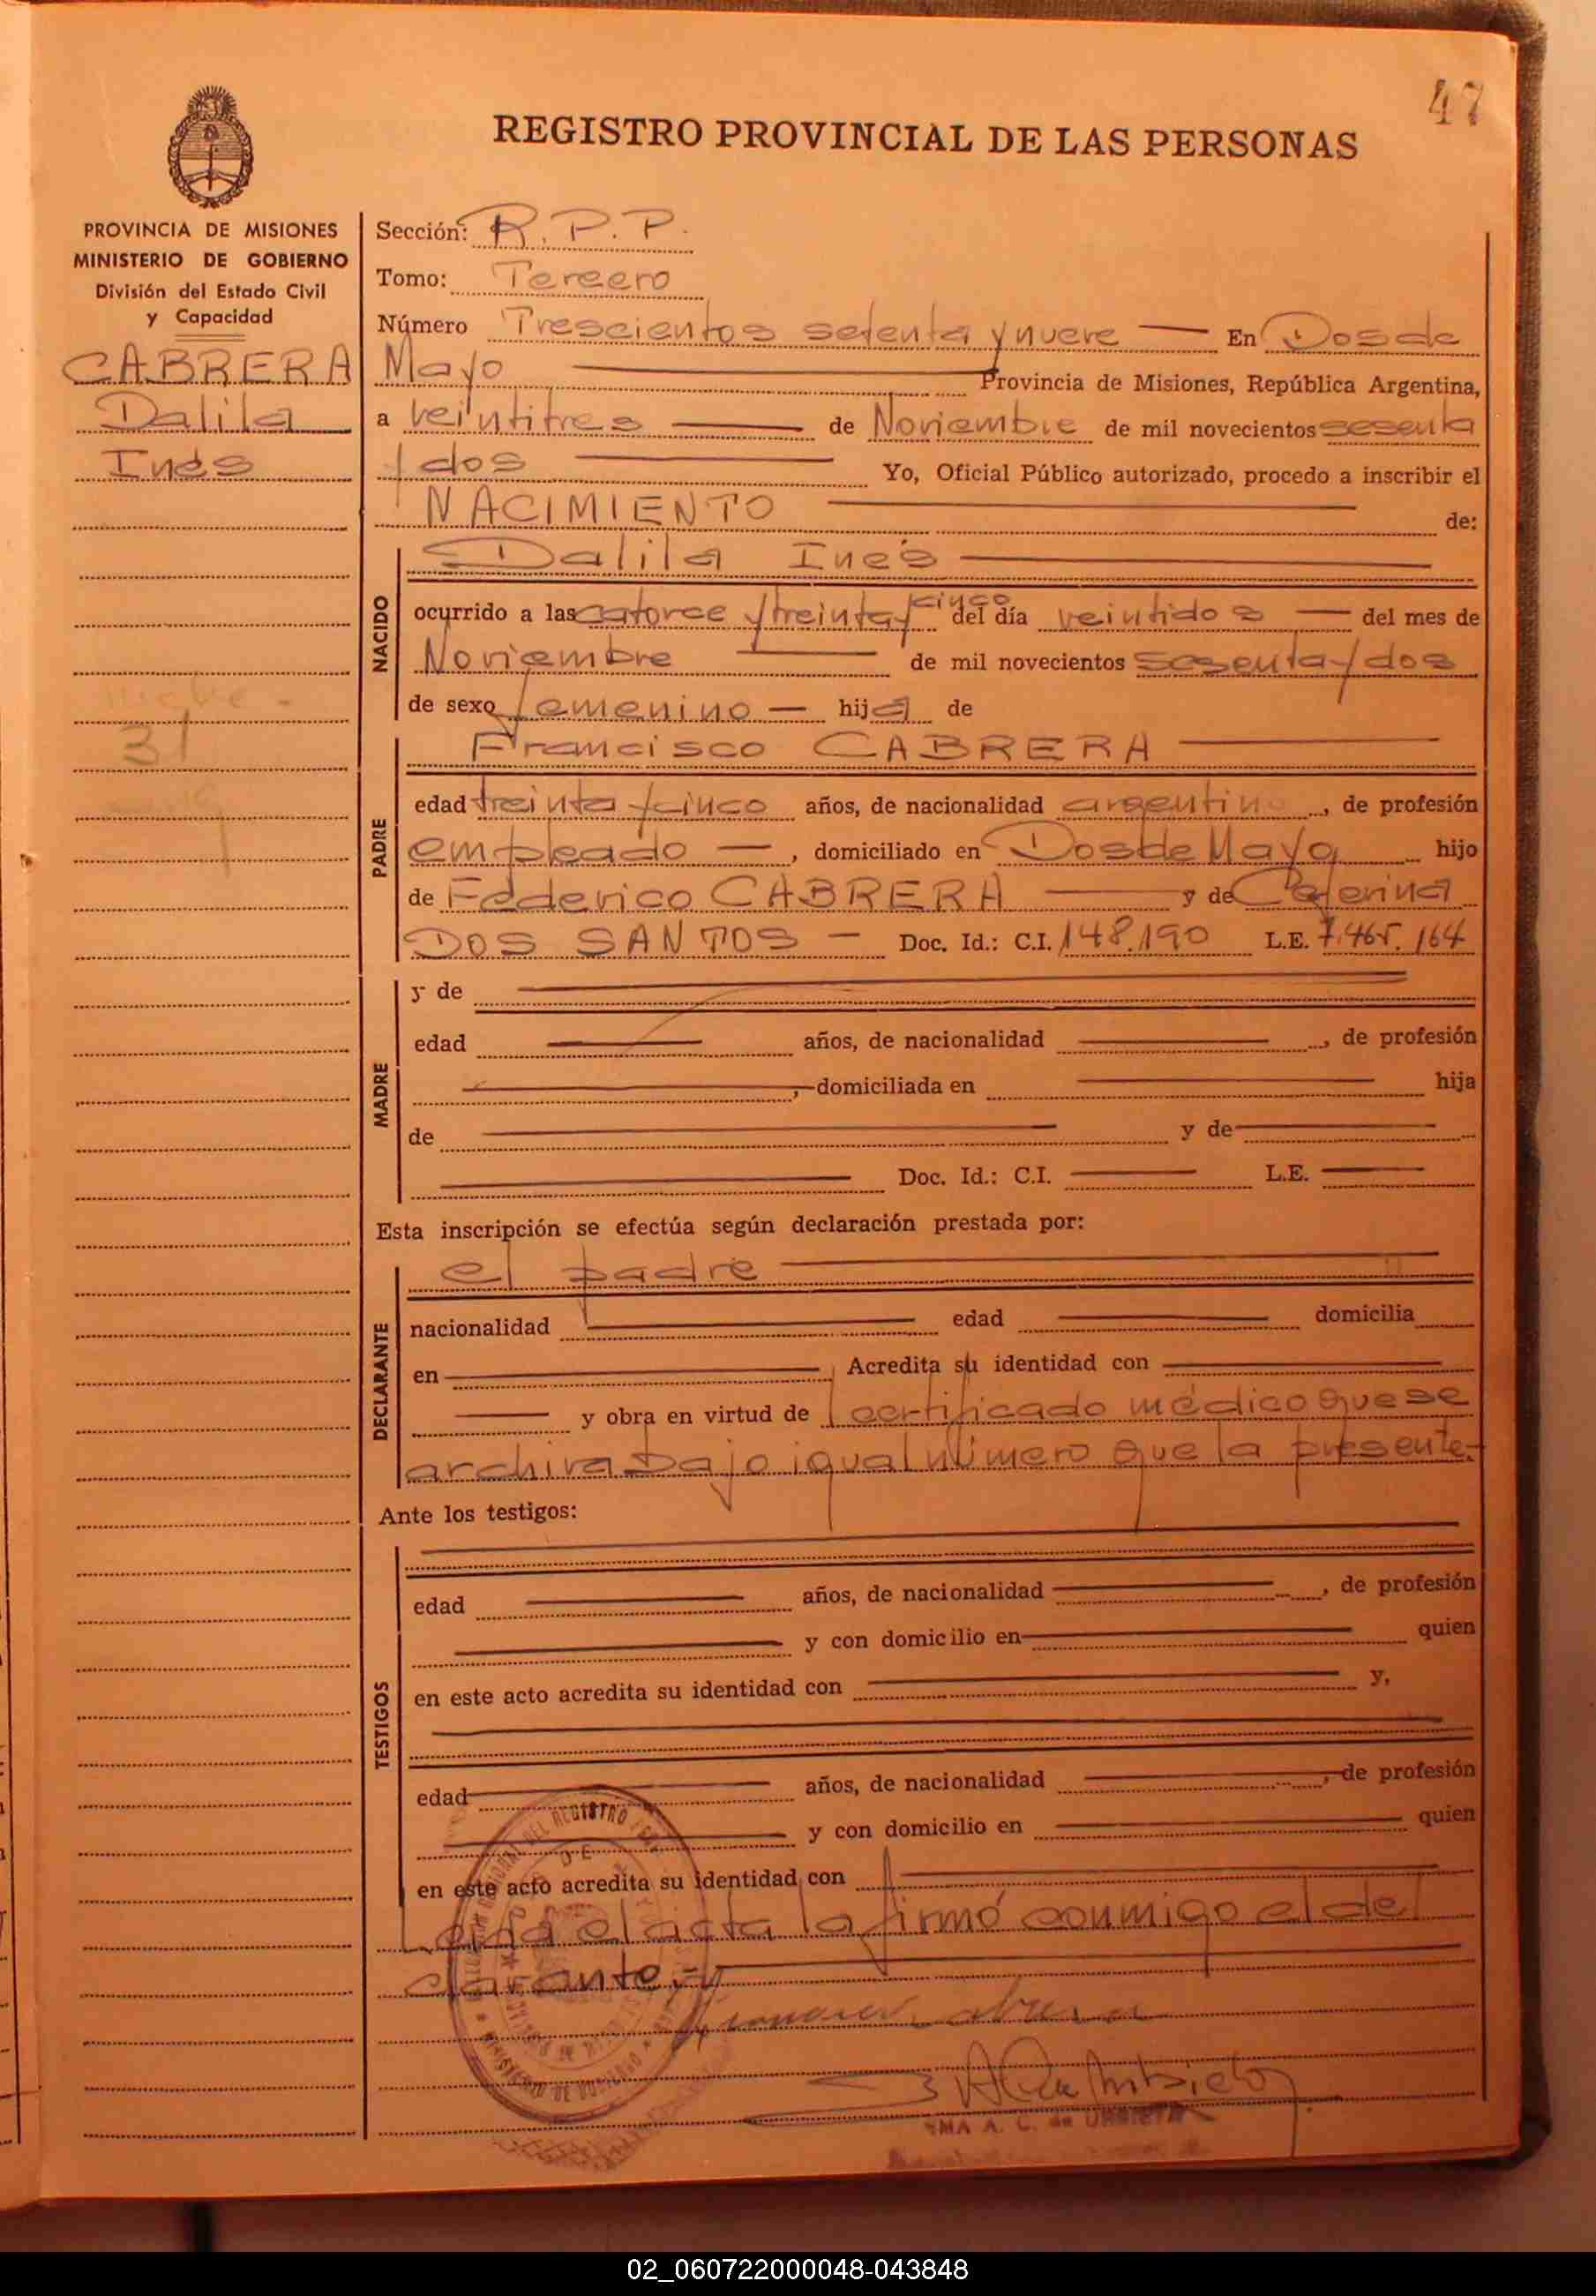 47
REGISTRO PROVINCIAL DE LAS PERSONAS
PROVINCIA DE MISIONES
MINISTERIO DE GOBIERNO
División del Estado Civil
y Capacidad
CABRERA
Dalila
Inés
31
Sección: R. P. P.
Tomo: Tercero
Número Trescientos setenta y nueve — En Dos de
Mayo — Provincia de Misiones, República Argentina,
a veintitres — de Noviembre de mil novecientos sesenta
y dos — Yo, Oficial Público autorizado, procedo a inscribir el
NACIMIENTO — de:
NACIDO
Dalila Inés —
ocurrido a las catorce y treinta y cinco del día veintidos — del mes de
Noviembre — de mil novecientos sesenta y dos
de sexo femenino — hija de
PADRE
Francisco CABRERA —
edad treinta y cinco años, de nacionalidad argentino, de profesión
empleado —, domiciliado en Dos de Mayo hijo
de Federico CABRERA — y de Ceferina
DOS SANTOS — Doc. Id.: C.I. 148.190 L.E. 7.465.164
MADRE
y de —
edad — años, de nacionalidad —, de profesión
—, domiciliada en — hija
de — y de —
— Doc. Id.: C.I. — L.E. —
Esta inscripción se efectúa según declaración prestada por:
DECLARANTE
el padre —
nacionalidad — edad — domicilia
en — Acredita su identidad con —
— y obra en virtud de certificado médico que se
archiva bajo igual número que la presente.-
Ante los testigos:
TESTIGOS
edad — años, de nacionalidad —, de profesión
— y con domicilio en — quien
en este acto acredita su identidad con — y,
edad — años, de nacionalidad —, de profesión
— y con domicilio en — quien
en este acto acredita su identidad con —
Leída el acta la firmó conmigo el de
clarante.-
A. C. de URBIETA
02_060722000048-043848